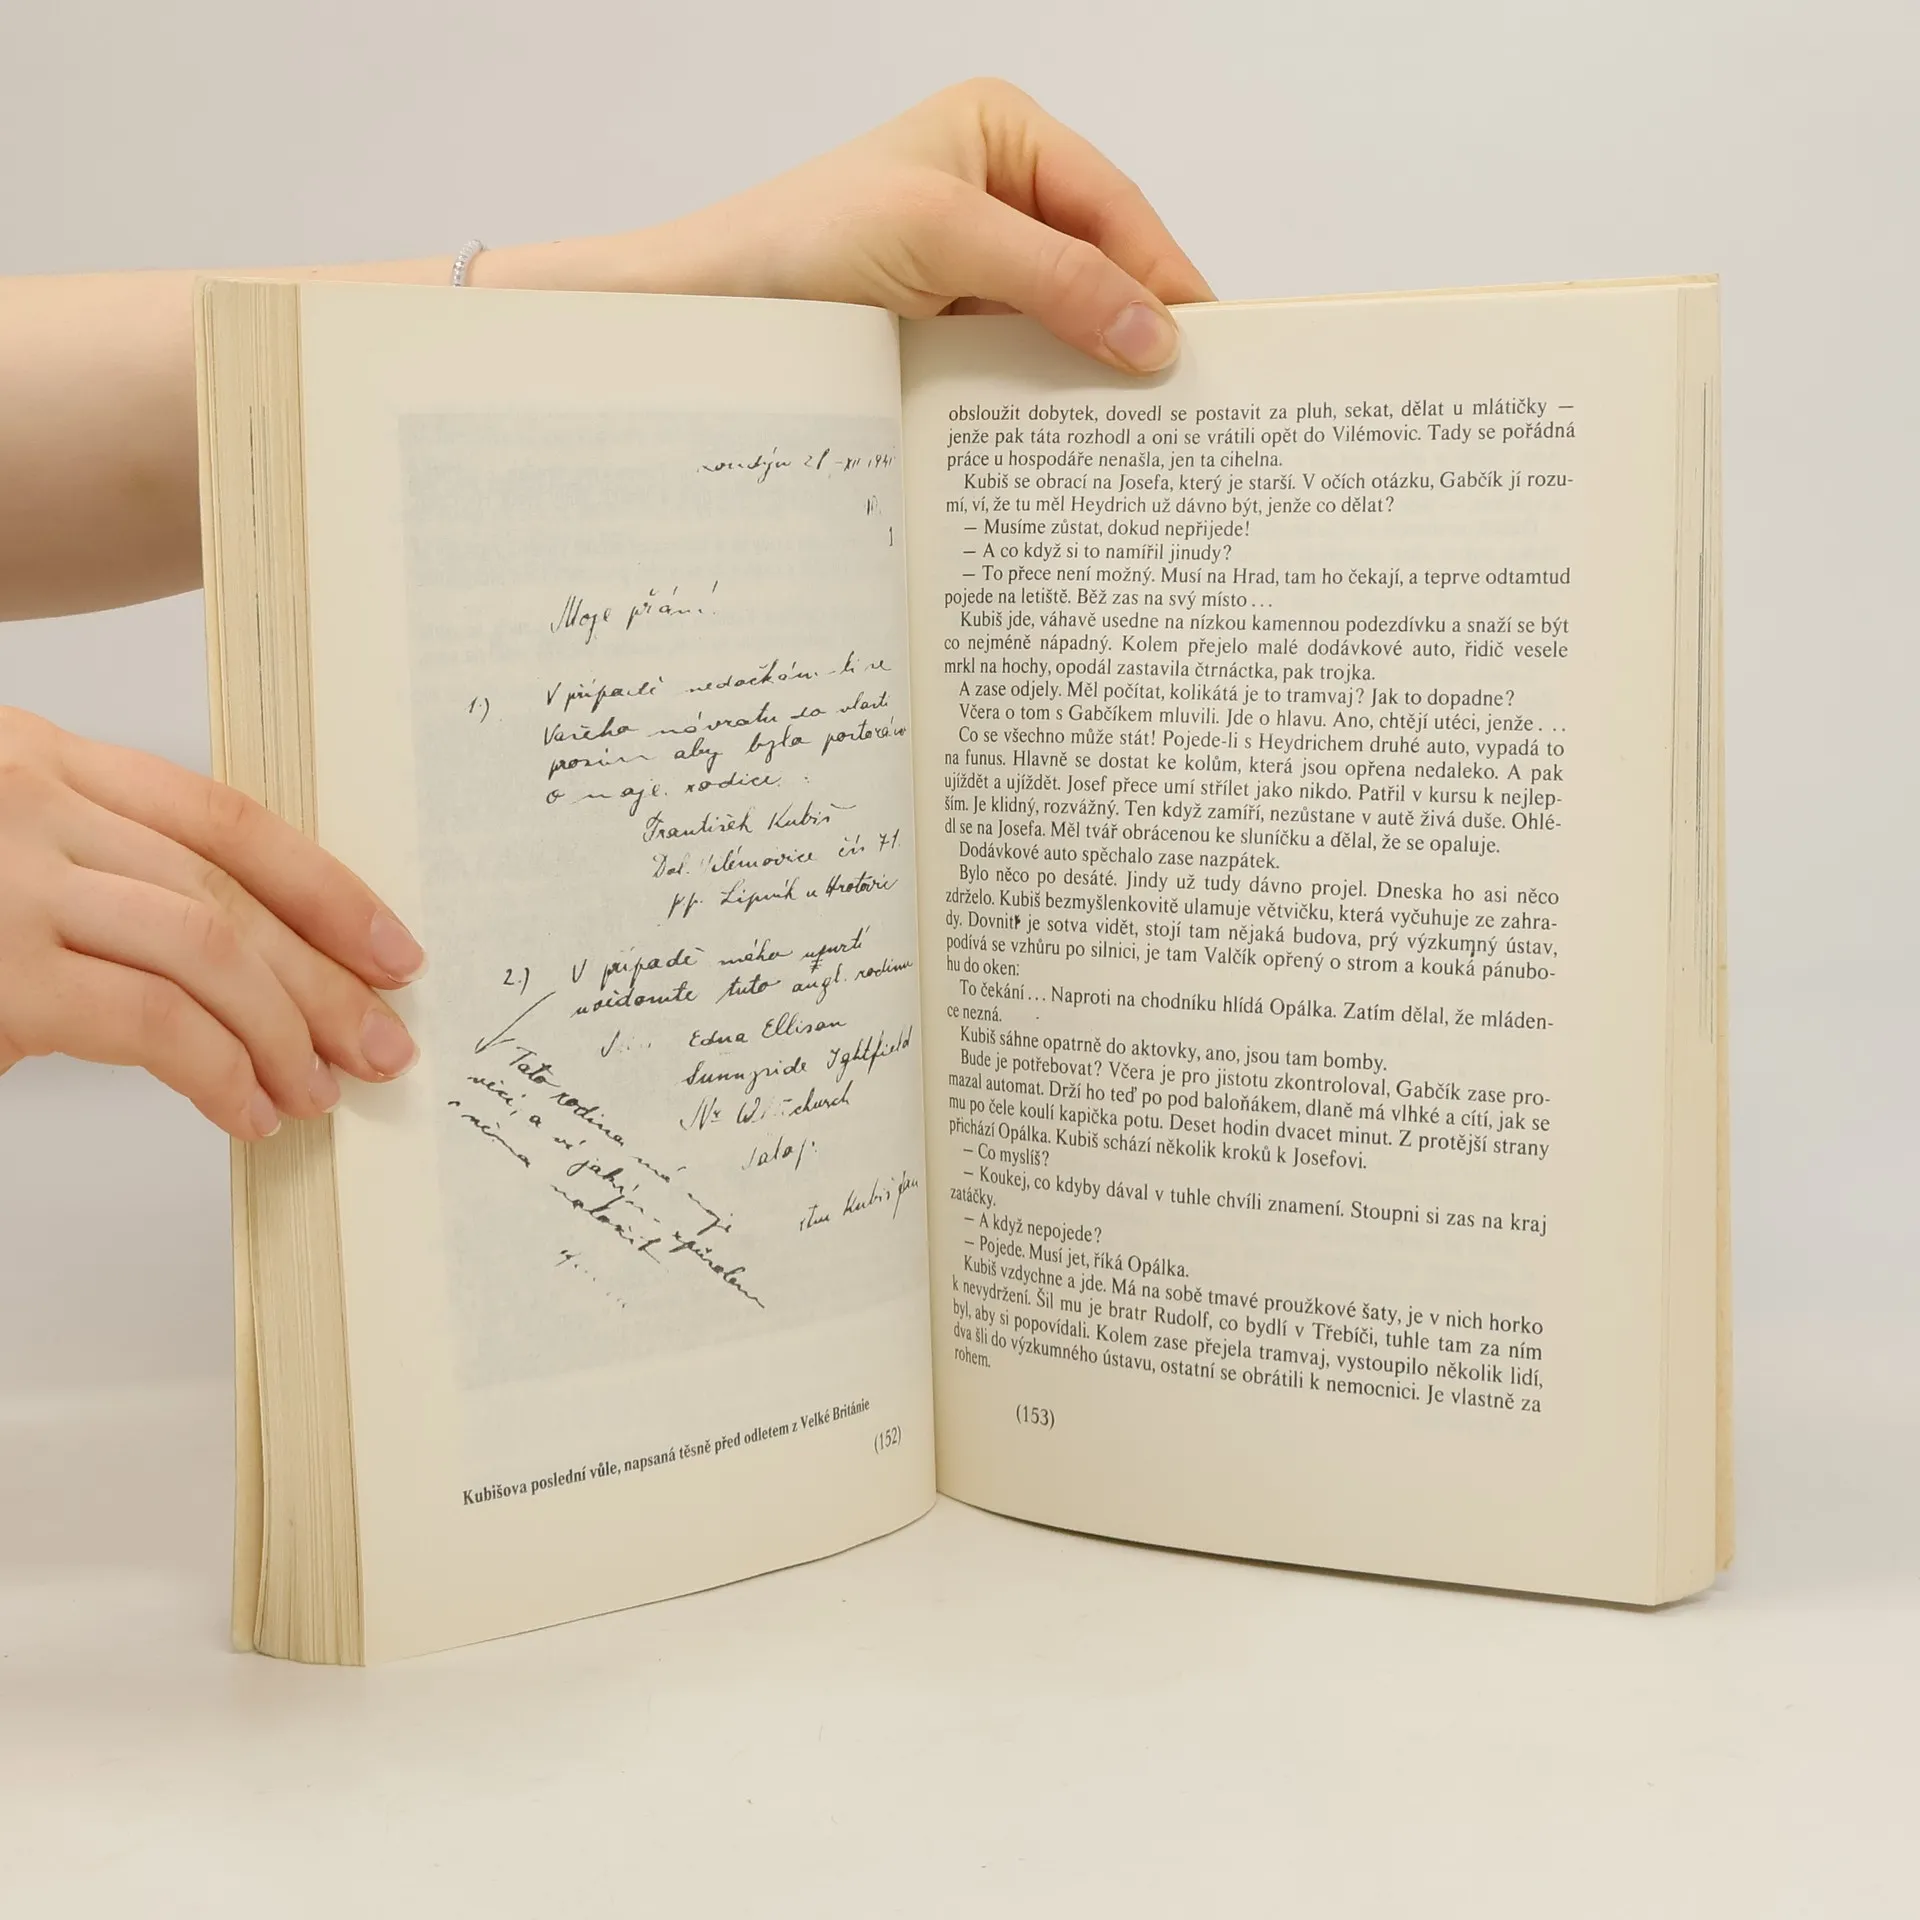 Londýn 21-XII 1941
10.
1
Moje přání!
1.) V případě nedočkám-li se
Vašeho návratu do vlasti
prosím aby bylo postaráno
o moje rodiče:
František Kubiš
Dol. Vilémovice čís 71.
pp. Lipník u Hrotovic
2.) V případě mého úmrtí
uvědomte tuto angl. rodinu
Edna Ellison
Sunnyside Ightfield
Nr Whitchurch
Salop:
rtm Kubiš Jan
Tato rodina má moje
věci, a ví jakým způsobem
s nima naložit
Kubišova poslední vůle, napsaná těsně před odletem z Velké Británie
(152)
obsloužit dobytek, dovedl se postavit za pluh, sekat, dělat u mlátičky —
jenže pak táta rozhodl a oni se vrátili opět do Vilémovic. Tady se pořádná
práce u hospodáře nenašla, jen ta cihelna.
Kubiš se obrací na Josefa, který je starší. V očích otázku, Gabčík jí rozu-
mí, ví, že tu měl Heydrich už dávno být, jenže co dělat?
— Musíme zůstat, dokud nepřijede!
— A co když si to namířil jinudy?
— To přece není možný. Musí na Hrad, tam ho čekají, a teprve odtamtud
pojede na letiště. Běž zas na svý místo…
Kubiš jde, váhavě usedne na nízkou kamennou podezdívku a snaží se být
co nejméně nápadný. Kolem přejelo malé dodávkové auto, řidič vesele
mrkl na hochy, opodál zastavila čtrnáctka, pak trojka.
A zase odjely. Měl počítat, kolikátá je to tramvaj? Jak to dopadne?
Včera o tom s Gabčíkem mluvili. Jde o hlavu. Ano, chtějí utéci, jenže…
Co se všechno může stát! Pojede-li s Heydrichem druhé auto, vypadá to
na funus. Hlavně se dostat ke kolům, která jsou opřena nedaleko. A pak
ujíždět a ujíždět. Josef přece umí střílet jako nikdo. Patřil v kursu k nejlep-
ším. Je klidný, rozvážný. Ten když zamíří, nezůstane v autě živá duše. Ohlé-
dl se na Josefa. Měl tvář obrácenou ke sluníčku a dělal, že se opaluje.
Dodávkové auto spěchalo zase nazpátek.
Bylo něco po desáté. Jindy už tudy dávno projel. Dneska ho asi něco
zdrželo. Kubiš bezmyšlenkovitě ulamuje větvičku, která vyčuhuje ze zahra-
dy. Dovnitř je sotva vidět, stojí tam nějaká budova, prý výzkumný ústav,
podívá se vzhůru po silnici, je tam Valčík opřený o strom a kouká pánubo-
hu do oken.
To čekání… Naproti na chodníku hlídá Opálka. Zatím dělal, že mláden-
ce nezná.
Kubiš sáhne opatrně do aktovky, ano, jsou tam bomby.
Bude je potřebovat? Včera je pro jistotu zkontroloval, Gabčík zase pro-
mazal automat. Drží ho teď po pod baloňákem, dlaně má vlhké a cítí, jak se
mu po čele koulí kapička potu. Deset hodin dvacet minut. Z protější strany
přichází Opálka. Kubiš schází několik kroků k Josefovi.
— Co myslíš?
— Koukej, co kdyby dával v tuhle chvíli znamení. Stoupni si zas na kraj
zatáčky.
— A když nepojede?
— Pojede. Musí jet, říká Opálka.
Kubiš vzdychne a jde. Má na sobě tmavé proužkové šaty, je v nich horko
k nevydržení. Šil mu je bratr Rudolf, co bydlí v Třebíči, tuhle tam za ním
byl, aby si popovídali. Kolem zase přejela tramvaj, vystoupilo několik lidí,
dva šli do výzkumného ústavu, ostatní se obrátili k nemocnici. Je vlastně za
rohem.
(153)